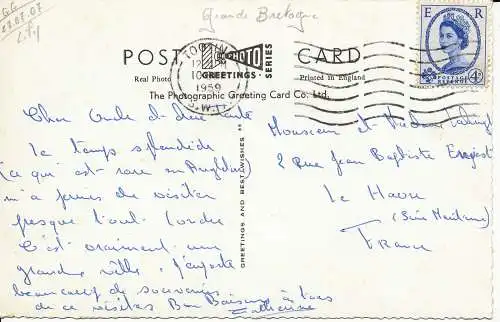 G.G
28.07.07
Lily
Grande Bretagne
E R
POSTAGE REVENUE
4D
POST CARD
PHOTO
GREETINGS · SERIES
Real Photo
Printed in England
The Photographic Greeting Card Co. Ltd.
TOOTING
1959
S.W.17
GREETINGS AND BEST WISHES
Cher Oncle et chère tante
Le temps splendide
(ce qui est rare en Angleterre)
m'a permis de visiter
presque tout Londre
C'est vraiment une
grande ville. J'emporte
beaucoup de souvenirs
de ces visites Bon Baisers à tous
Catherine
Monsieur et Madame
2 Rue Jean Baptiste
Le Havre
(Seine Maritime)
France